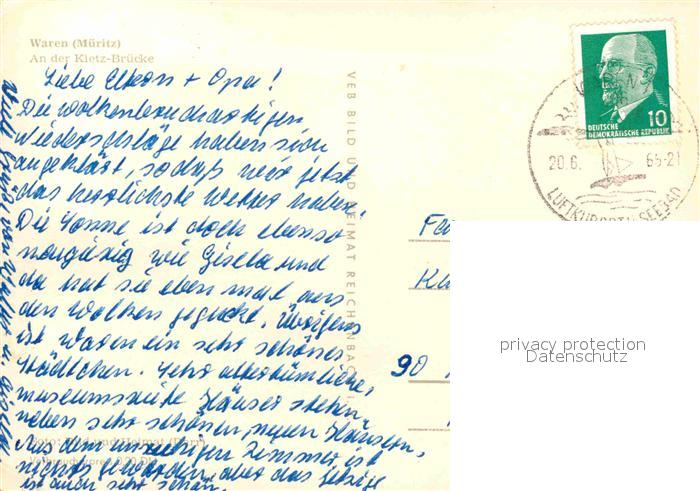 Waren (Müritz)
An der Kietz-Brücke
Liebe Eltern + Opa!
Die wolkenbruchartigen
Niederschläge haben sich
aufgeklärt, sodaß wir jetzt
das herrlichste Wetter haben.
Die Sonne ist doch ebenso
neugierig wie Gisela und
da hat sie eben mal aus
den Wolken geguckt. Übrigens
ist Waren ein sehr schönes
Städtchen. Sehr altertümliche,
museumsreife Häuser stehen
neben sehr schönen, neuen Häusern.
Aus dem unruhigen Zimmer ist
nichts geworden, aber das jetzige
ist auch sehr schön.
Viele Grüße von
VEB BILD UND HEIMAT REICHENBACH
Foto: Bild und Heimat
Verbraucherpreis 0,20 DM
10
DEUTSCHE
DEMOKRATISCHE REPUBLIK
20.6. 65-21
LUFTKURORT
Fa
90
privacy protection
Datenschutz